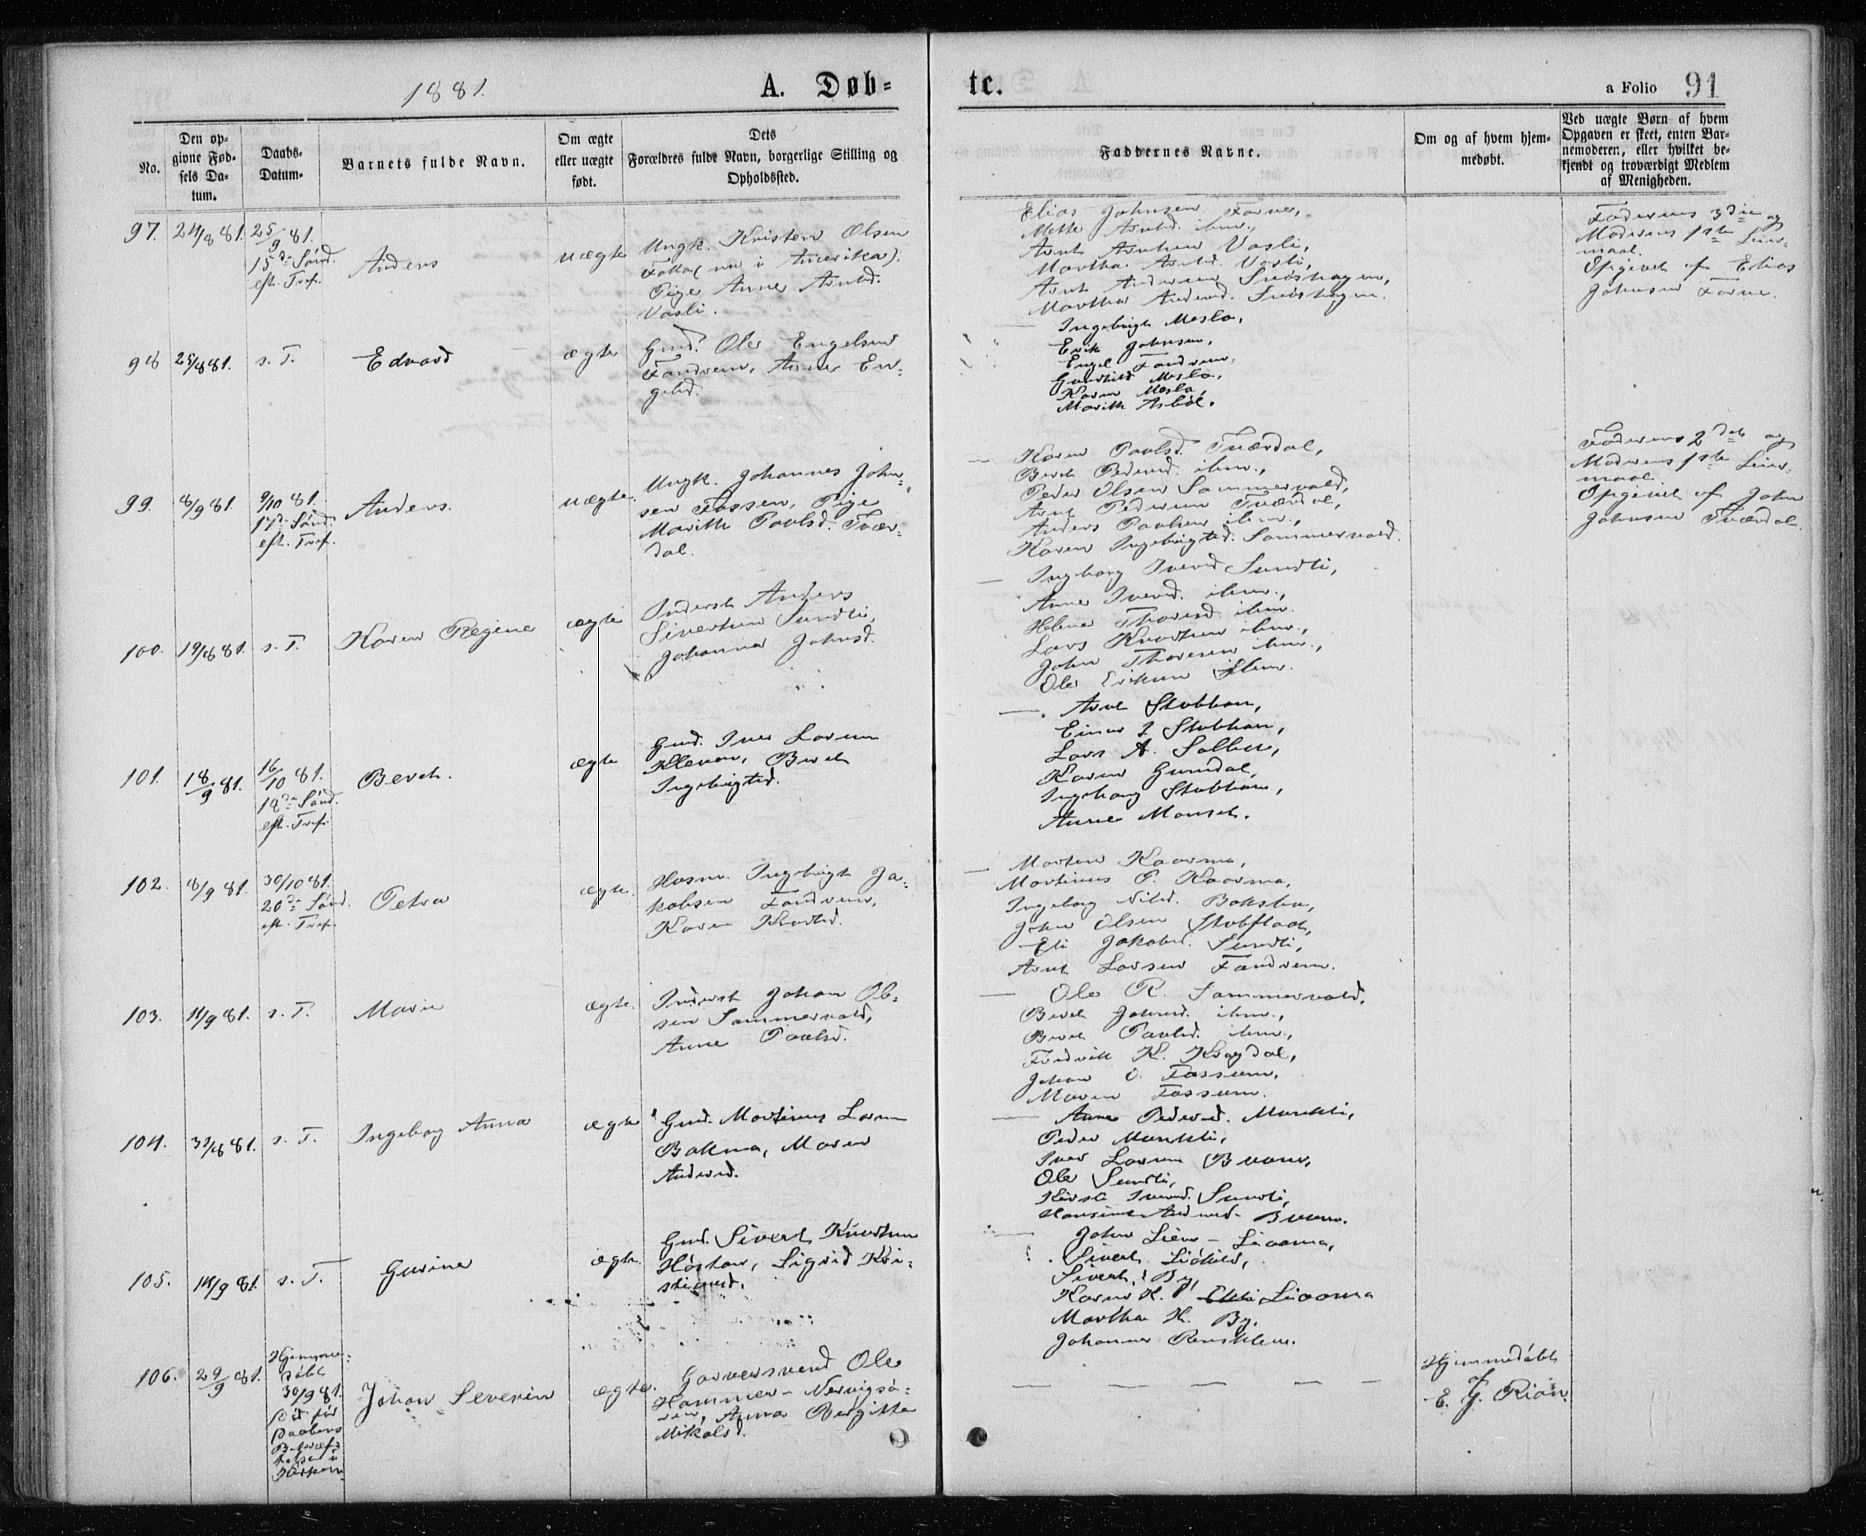 1881.
A. Døb-
te.
a Folio 91
No.
Den op-
givne Fød-
sels Da-
tum.
Daabs-
Datum.
Barnets fulde Navn.
Om ægte
eller uægte
født.
Dets
Forældres fulde Navn, borgerlige Stilling og
Opholdssted.
Faddernes Navne.
Om og af hvem hjem-
medøbt.
Ved uægte Børn af hvem
Opgaven er skeet, enten Bar-
nemoderen, eller hvilket be-
kjendt og troværdigt Medlem
af Menigheden.
97.
24/8 81.
25/9 81.
15de Sønd.
eft. Tref.
Anders
uægte
Ungk. Kristen Olsen
(nu i Amerika).
Pige Anne Arntsd.
Vasli.
Elias Johnsen
Mette Arntsd. ibm.,
Arnt Arntsen Vasli,
Martha Arntsd. Vasli,
Arnt Andersen
Martha Andersd.
Faderens 3die og
Moderens 1ste Leier-
maal.
Opgivet af Elias
Johnsen
98
25/8 81.
s. T.
Edvard
ægte
Gmd. Ole Engelsen
Fandrem, Anne En-
gelsd.
Ingebrigt Meslo,
Erik Johnsen,
Engel Fandrem,
Gunhild Meslo,
Karen Meslo,
Marith Asbøl.
99.
8/9 81.
9/10 81.
17de Sønd.
eft. Tref.
Anders.
uægte.
Ungk. Johannes John-
sen Fossen, Pige
Marith Paulsd. Tvær-
dal.
Karen Paulsd. Tværdal,
Berit Pedersd. ibm.,
Peder Olsen Sommervold,
Arnt Pedersen Tværdal,
Anders Paulsen ibm.,
Karen Ingebrigtsd. Sommervold.
Faderens 2det og
Moderens 1ste Leier-
maal.
Opgivet af John
Johnsen Tværdal.
100.
19/8 81.
s. T.
Karen Regine
ægte
Inderst Anders
Sivertsen Sundli,
Johanna Johnsd.
Ingeborg Iversd. Sundli,
Anne Iversd. ibm.,
Helene Thoresd. ibm.
Lars Knudsen ibm.,
John Thoresen ibm.,
Ole Eriksen ibm.
101.
18/9 81.
16/10 81.
18de Sønd.
eft. Tref.
Berit.
ægte
Gmd. Iver Larsen
Kleven, Berit
Ingebrigtsd.
Arnt Stubban,
Einar I Stubban,
Lars A. Solberg,
Karen Grindal,
Ingeborg Stubban,
Anne Monset.
102.
8/9 81.
30/10 81.
20de Sønd.
eft. Tref.
Petra
ægte.
Husm. Ingebrigt Ja-
kobsen Fandrem,
Karen Knudsd.
Morten Kaarmo,
Martinus P. Kaarmo,
Ingeborg Nilsd.
John Olsen
Eli Jakobsd. Sundli,
Arnt Larsen Fandrem.
103.
11/9 81.
s. T.
Marie
ægte.
Inderst Johan Ol-
sen Sommervold,
Anne Paulsd.
Ole R. Sommervold,
Berit Johnsd. ibm.,
Berit Paulsd. ibm.,
Fredrik K. Krogdal,
Johan O. Fossum,
Maren Fossum.
104.
31/8 81.
s. T.
Ingeborg Anna
ægte
Gmd. Martinus Larsen
Bakmo, Maren
Andersd.
Anne Pedersd. Monkli,
Peder Monkli,
Iver Larsen
Ole Sundli,
Kirsti Iversd. Sundli,
Hansine Andersd.
105.
14/9 81.
s. T.
Gurine
ægte.
Gmd. Sivert Knudsen
Høston, Sigrid Kri-
stiansd.
John Lien –
Sivert
Sivert I By,
Karen H.
Martha H. By.
Johanna
106.
29/9 81.
Hjemme-
døbt
30/9 81.
Død før
Daabens
Bekræf-
telse i
Kirken
Johan Severin
ægte.
Garversvend Ole
Hammer –
Anna Bergitte
Mikalsd.
Hjemmedøbt
af
E. G. Rian.